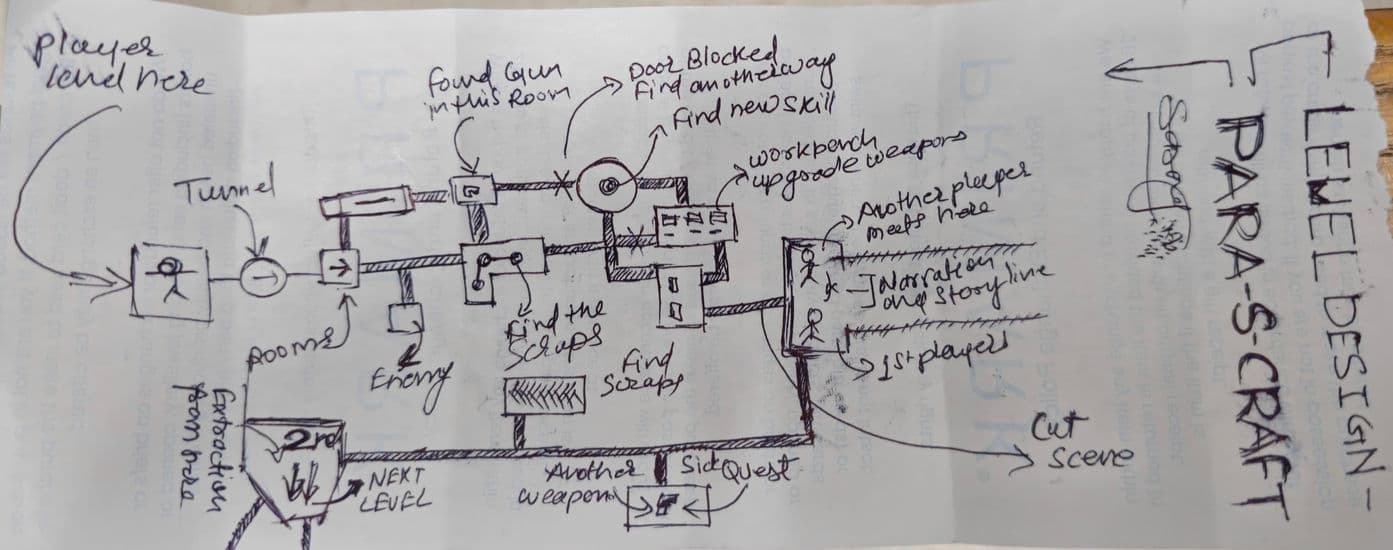 LEVEL DESIGN -
PARA-S-CRAFT
Player
land here
Tunnel
Rooms
Found Gun
in this Room
Door Blocked
Find another way
Find new skill
workbench
upgrade weapons
Another player
meets here
Narration
and story line
1st players
Enemy
Find the
Scraps
Find
Scraps
Cut
Scene
Another
weapon
Side Quest
Extraction
from here
2nd
NEXT
LEVEL